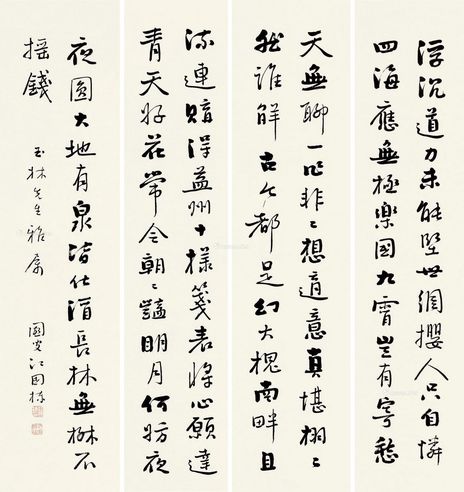 浮沉道力未能堅世網攖人只自憐
四海應無極樂國九霄豈有寄愁
天無聊一作非非想適意真堪栩栩
然誰解古今都是幻大槐南畔且
流連賒得益州十樣箋表將心願達
青天好花常令朝朝豔明月何妨夜
夜圓大地有泉皆化酒長林無樹不
搖錢
玉林先生雅屬
江國棟